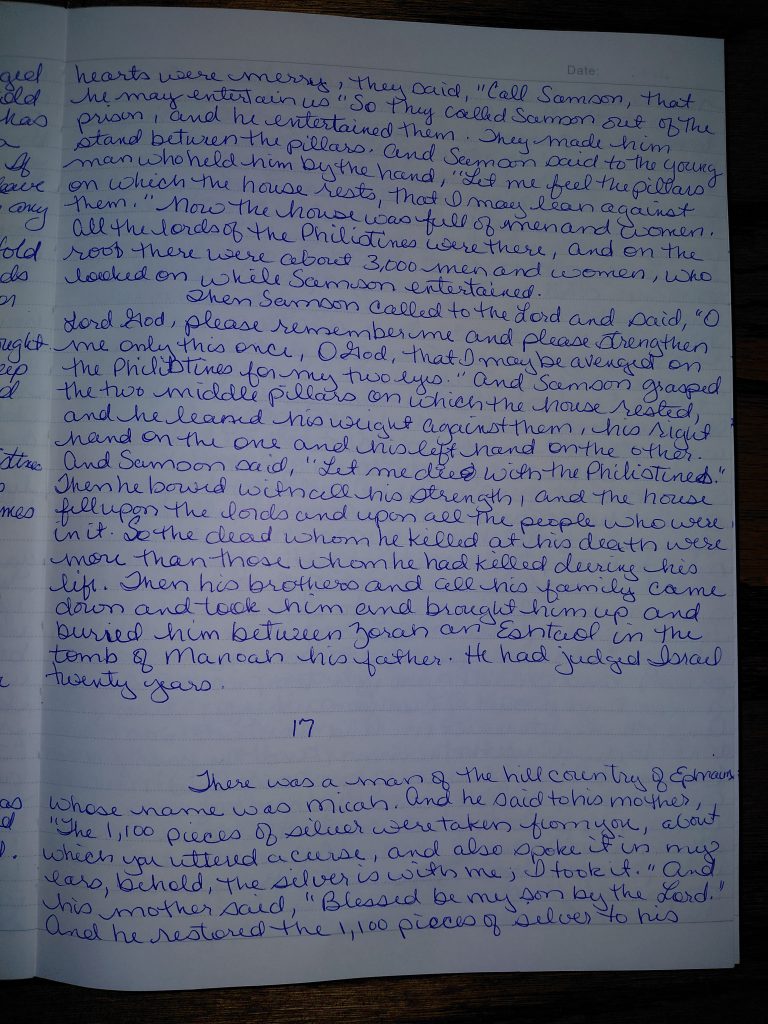 Date:
ged
old
has
a
If
leave
, any
told
ds
or
ought
eep
d
istines
o
mes
as
d
.
hearts were merry, they said, "Call Samson, that
he may entertain us" So they called Samson out of the
prison, and he entertained them. They made him
stand between the pillars. And Samson said to the young
man who held him by the hand, "Let me feel the pillars
on which the house rests, that I may lean against
them." Now the house was full of men and women.
All the lords of the Philistines were there, and on the
roof there were about 3,000 men and women, who
looked on while Samson entertained.
Then Samson called to the Lord and said, "O
Lord God, please remember me and please strengthen
me only this once, O God, that I may be avenged on
the Philistines for my two eyes." And Samson grasped
the two middle pillars on which the house rested,
and he leaned his weight against them, his right
hand on the one and his left hand on the other.
And Samson said, "Let me die with the Philistines."
Then he bowed with all his strength, and the house
fell upon the lords and upon all the people who were
in it. So the dead whom he killed at his death were
more than those whom he had killed during his
life. Then his brothers and all his family came
down and took him and brought him up and
buried him between Zorah an Eshtaol in the
tomb of Manoah his father. He had judged Israel
twenty years.
17
There was a man of the hill country of Ephraim
whose name was Micah. And he said to his mother,
"The 1,100 pieces of silver were taken from you, about
which you uttered a curse, and also spoke it in my
ears, behold, the silver is with me; I took it." And
his mother said, "Blessed be my son by the Lord."
And he restored the 1,100 pieces of silver to his